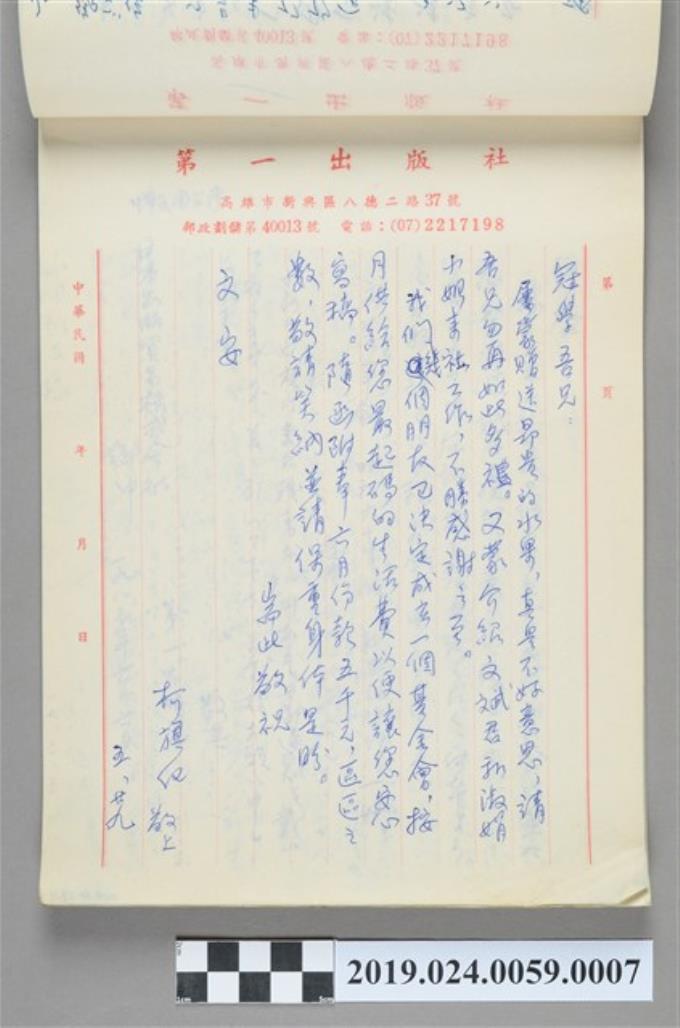 第一出版社
高雄市新興區八德二路37號
郵政劃儲第40013號 電話：(07)2217198
第 頁
冠學吾兄：
屢蒙贈送昂貴的水果，真是不好意思，請
吾兄勿再如此多禮。又蒙介紹文斌君和淑娟
小姐來社工作，不勝感謝之至。
我們幾個朋友已決定成立一個基金會，按
月供給您最起碼的生活費以便讓您安心
寫稿。隨函附奉六月份款五千元，區區之
數，敬請笑納並請保重身体是盼。
耑此敬祝
文安
柯旗化 敬上
五、廿九
中華民國 年 月 日
2019.024.0059.0007